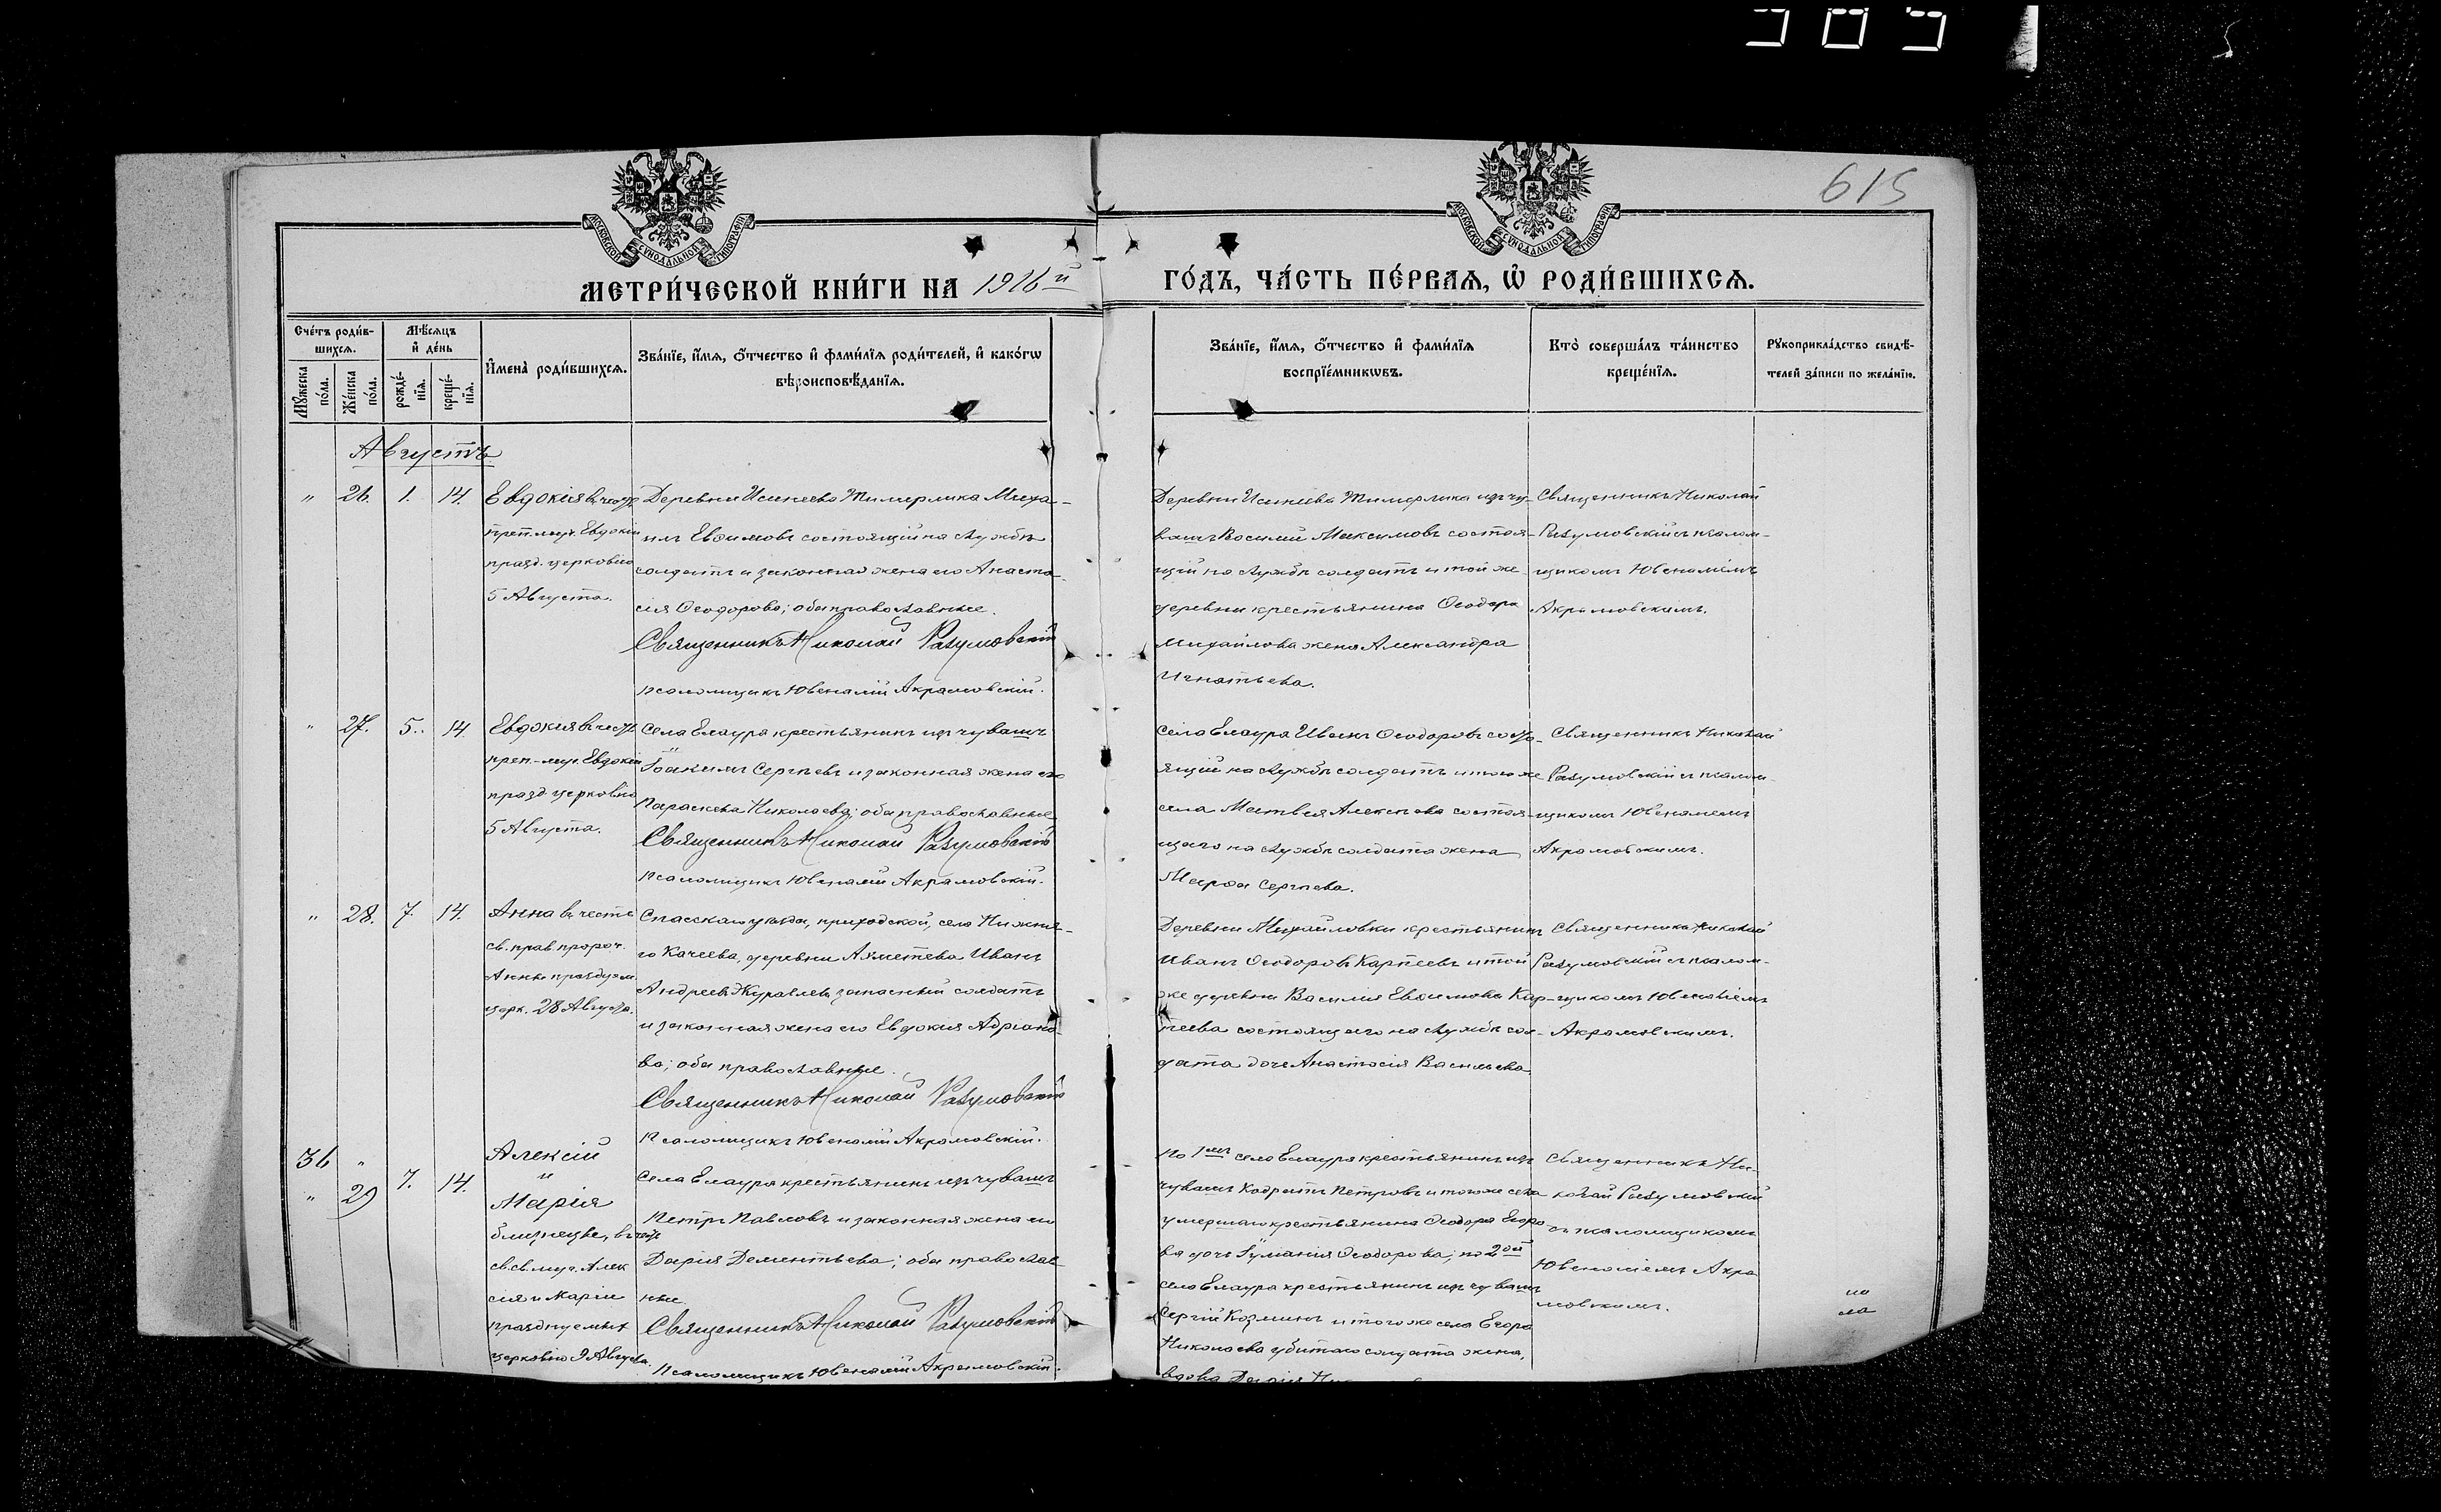 615
МОСКОВСКОЙ СУНОДАЛЬНОЙ ТИПОГРАФІИ
МОСКОВСКОЙ СУНОДАЛЬНОЙ ТИПОГРАФІИ
МЕТРИ́ЧЕСКОЙ КНИ́ГИ НА 1916й ГО́ДЪ, ЧА́СТЬ ПЕ́РВАЯ, Ѡ РОДИ́ВШИХСЯ.
Сче́тъ роди́в-
шихся.
Мꙋ́жеска по́ла.
Же́нска по́ла.
Мѣ́сяцъ
и҆ де́нь
рожде́-
нїя.
креще́-
нїя.
И҆мена̀ роди́вшихся.
Зва́нїе, и҆́мя, ѻ҆́тчество и҆ фами́лїя роди́телей, и҆ како́гѡ
вѣроисповѣ́данїя.
Зва́нїе, и҆́мя, ѻ҆́тчество и҆ фами́лїя
воспрїе́мникѡвъ.
Кто̀ соверша́лъ та́инство
креще́нїя.
Рꙋкоприкла́дство свидѣ́-
телей за́писи по жела́нїю.
Августъ
" 26. 1. 14.
Евдокія въ честь
преп. муч. Евдокіи
празд. церковію
5 Августа.
Деревни Исинеева Тимерлика Миха-
илъ Евѳимовъ состоящій на службѣ
солдатъ и законная жена его Анаста-
сія Ѳеодорова; оба православные.
Священникъ Николай Разумовскій
Псаломщикъ Ювеналій Акрамовскій.
Деревни Исинеева Тимерлика изъ чу-
вашъ Василій Максимовъ состоя-
щій на службѣ солдатъ и той же
деревни крестьянина Ѳеодора
Михайлова жена Александра
Игнатьева.
Священникъ Николай
Разумовскій съ псалом-
щикомъ Ювеналіемъ
Акрамовскимъ.
" 27. 5. 14.
Евдокія въ честь
преп.-муч. Евдокіи
празд. церковію
5 Августа.
Села Елаура крестьянинъ изъ чувашъ
Іоакимъ Сергѣевъ и законная жена его
Параскева Николаева; оба православные
Священникъ Николай Разумовскій
Псаломщикъ Ювеналій Акрамовскій.
Села Елаура Иванъ Ѳеодоровъ состо-
ящій на службѣ солдатъ и того же
села Матвея Алексѣева состоя-
щаго на службѣ солдата жена
Марѳа Сергѣева.
Священникъ Николай
Разумовскій съ псалом-
щикомъ Ювеналіемъ
Акрамовскимъ.
" 28. 7. 14.
Анна въ честь
св. прав. пророч.
Анны празднуем.
церк. 28 Августа.
Спасскаго уѣзда, приходской, села Нижня-
го Качеева, деревни Ахметева Иванъ
Андреевъ Журавлевъ запасный солдатъ
и законная жена его Евдокія Адріано-
ва; оба православные.
Священникъ Николай Разумовскій
Псаломщикъ Ювеналій Акрамовскій.
Деревни Михайловки крестьянинъ
Иванъ Ѳеодоровъ Карпеевъ и той
же деревни Василія Евѳимова Кар-
пеева состоящаго на службѣ сол-
дата дочь Анастасія Васильева
Священникъ Николай
Разумовскій съ псалом-
щикомъ Ювеналіемъ
Акрамовскимъ.
36 "
" 29 7. 14.
Алексій
и
Марія
близнецы, въ честь
св.св. муч. Алек
сія и Маріи
празднуемых
церковію 9 Августа.
Села Елаура крестьянинъ изъ чувашъ
Петръ Павловъ и законная жена его
Дарія Дементьева; оба православ
ные
Священникъ Николай Разумовскій
Псаломщикъ Ювеналій Акрамовскій.
По 1му села Елаура крестьянинъ изъ
чувашъ Петровъ и того же села
умершаго крестьянина Ѳеодора Егоро
ва дочь Ѳеодорова; по 2ой
села Елаура крестьянинъ изъ чувашъ
Сергій Козминъ и того же села Егора
Николаева убитаго солдата жена,
вдова Дарія
Священникъ Ни-
колай Разумовскій
съ псаломщикомъ
Ювеналіемъ Акра
мовскимъ.